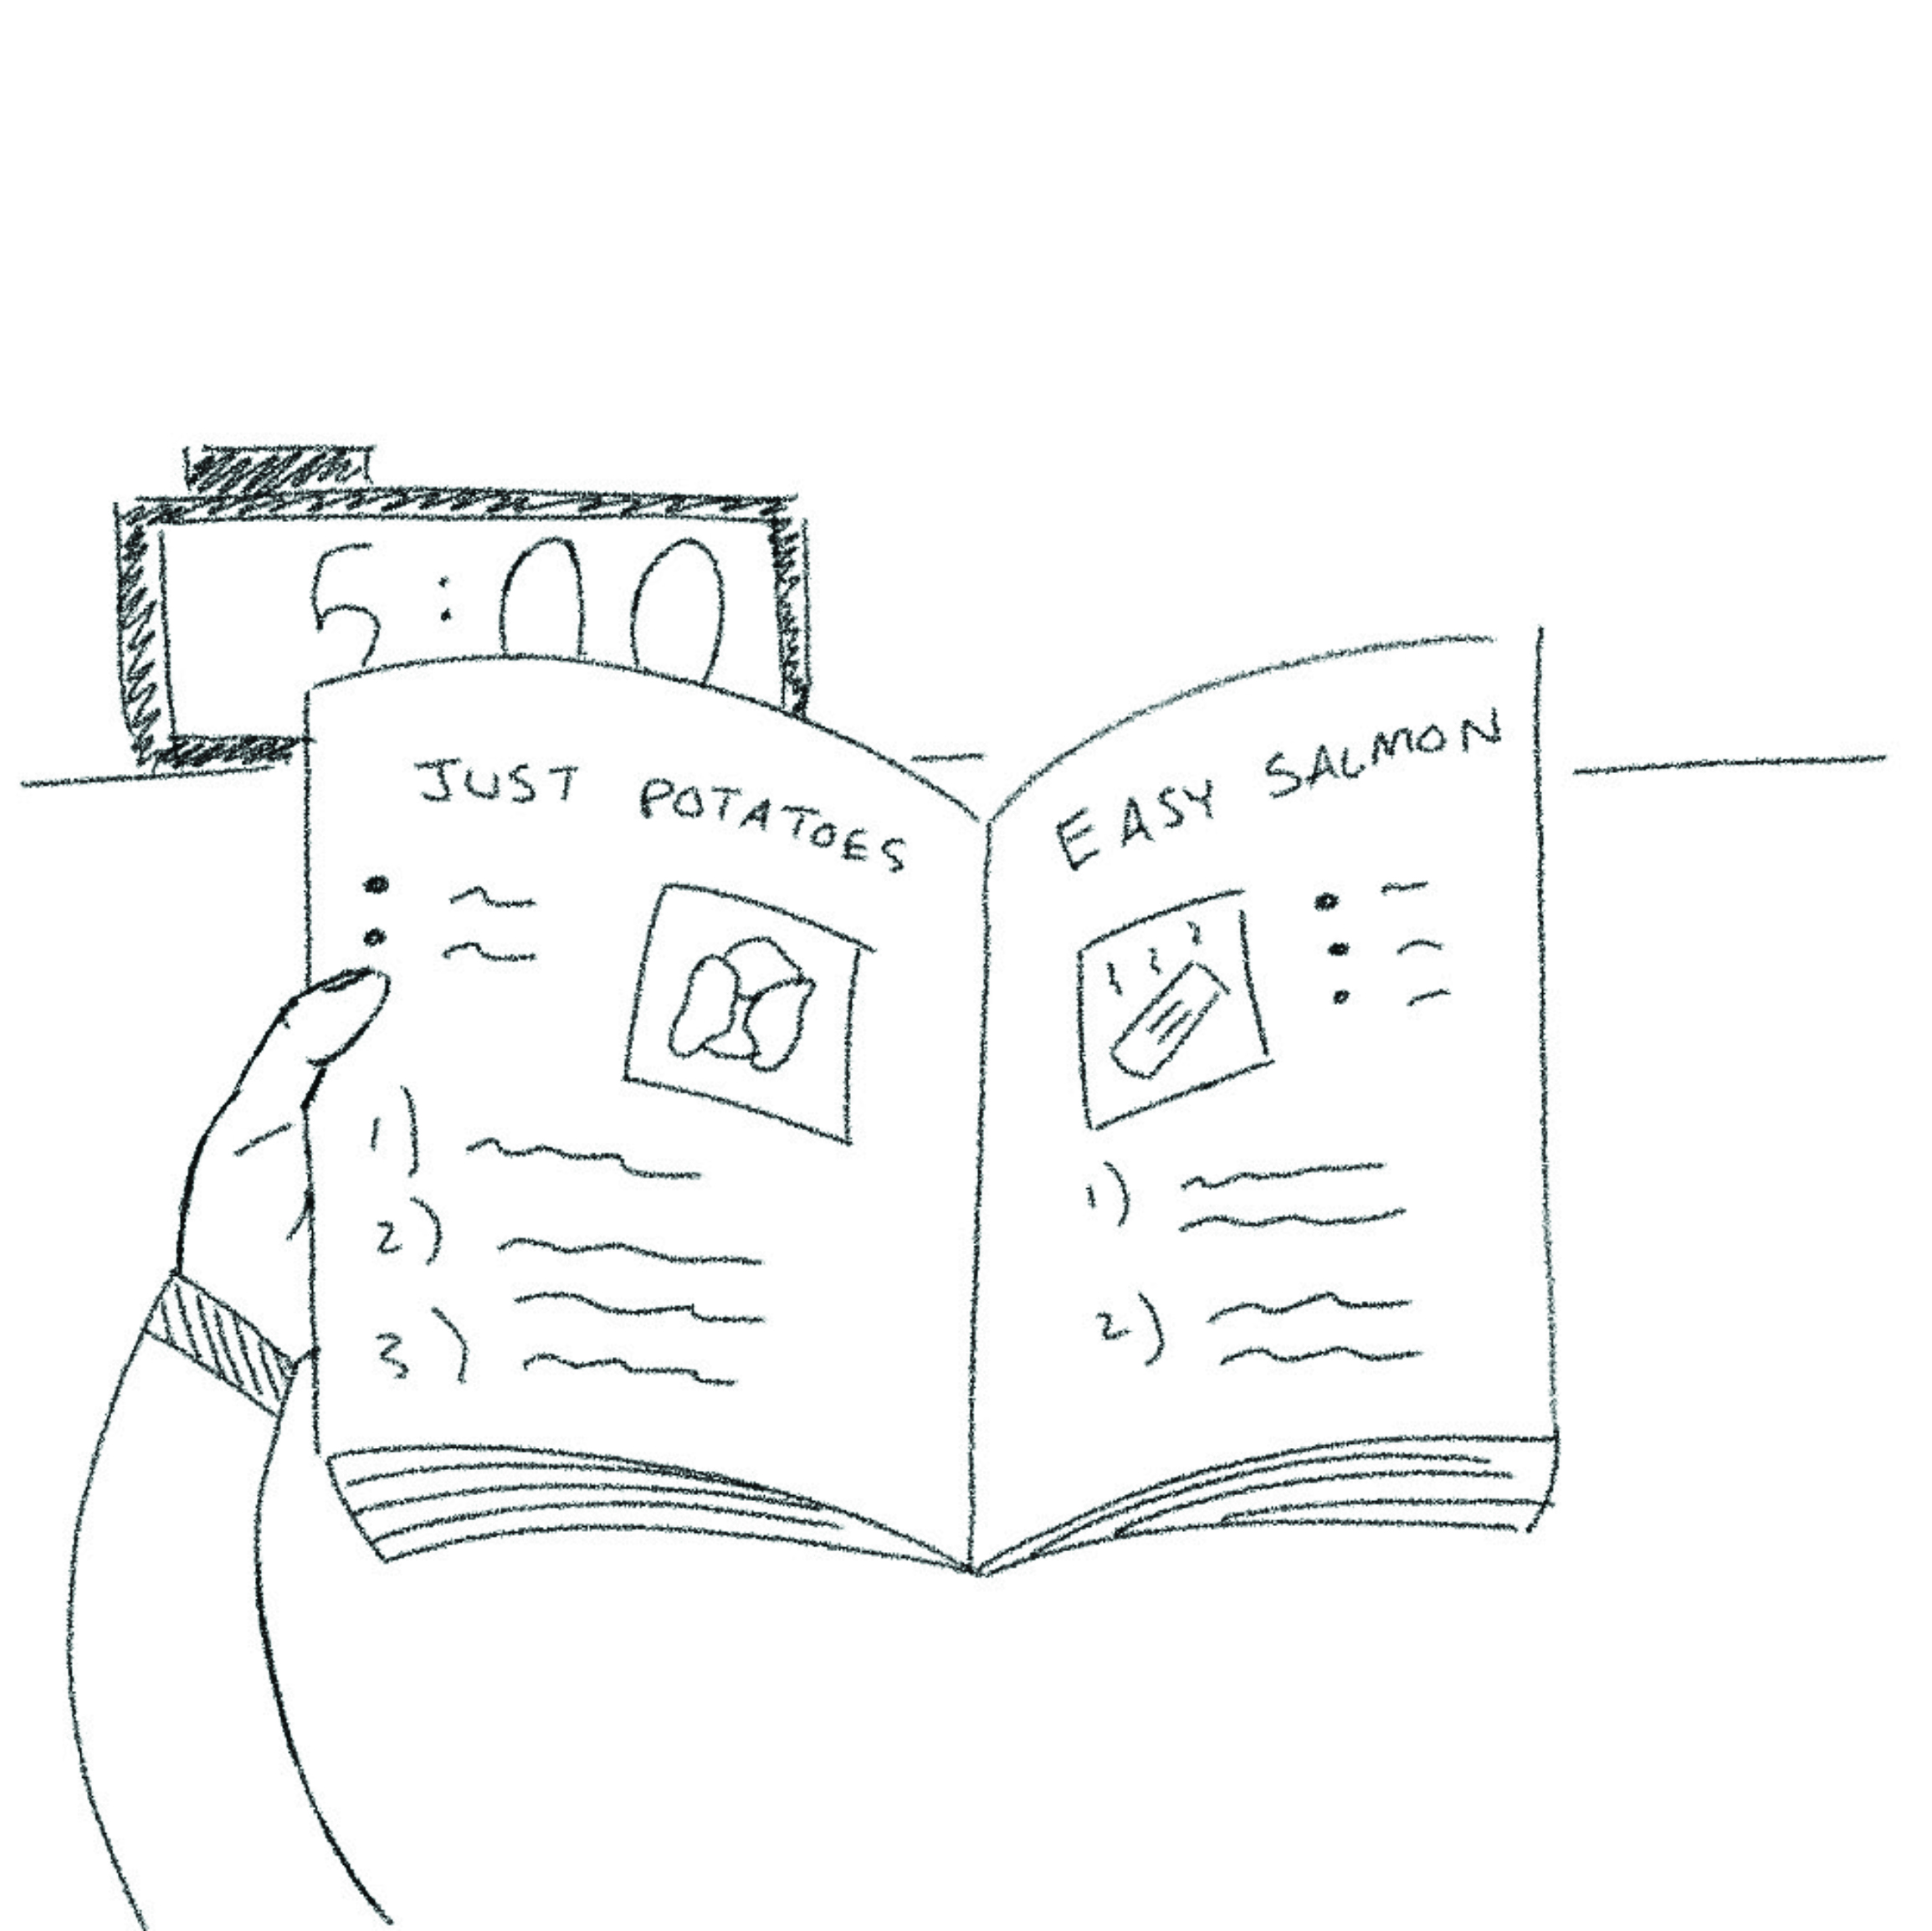 5:00
JUST POTATOES
1)
2)
3)
EASY SALMON
1)
2)